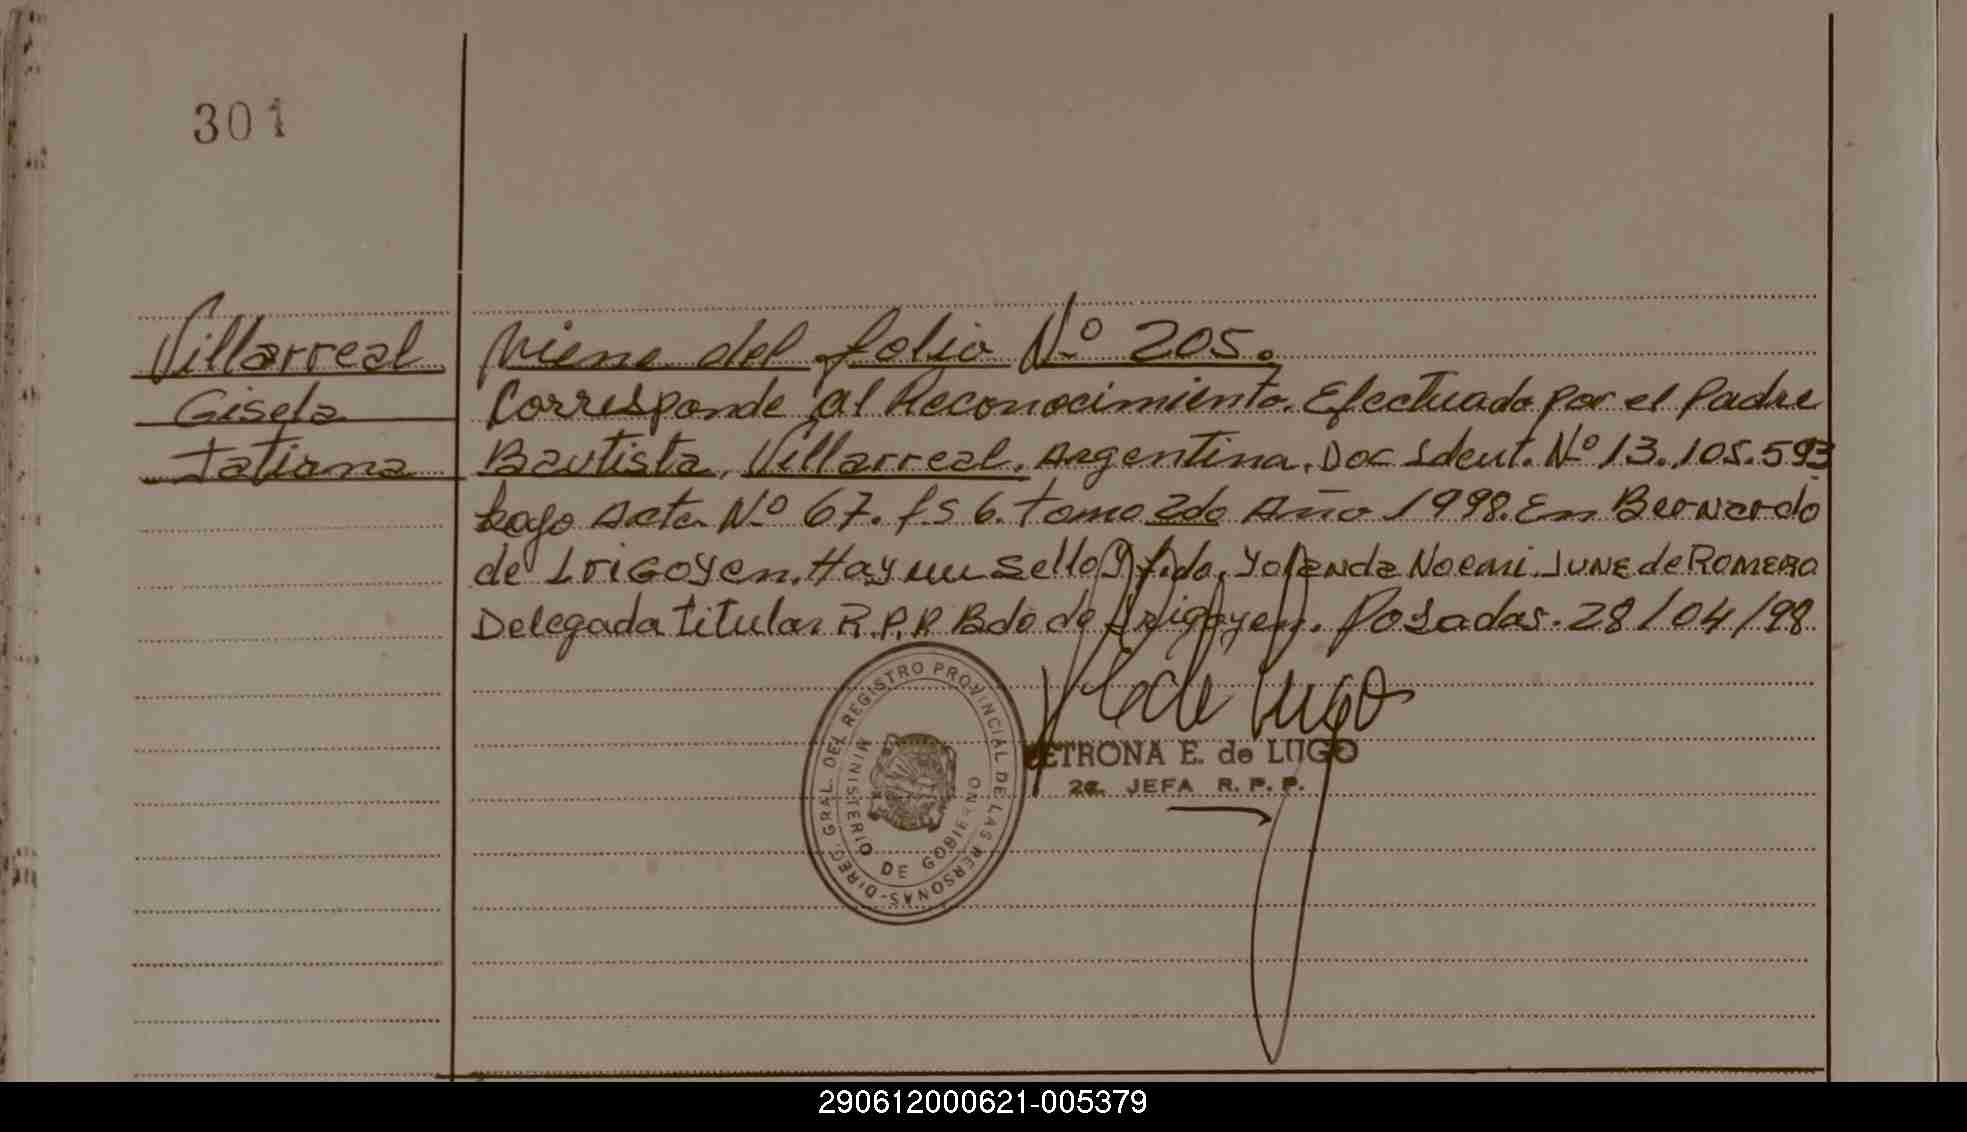 301
Villarreal
Gisela
Tatiana
Viene del folio Nº 205.
Corresponde al Reconocimiento. Efectuado por el Padre
Bautista, Villarreal. Argentina. Doc Ident. Nº 13.105.593
bajo Acta Nº 67. fs 6. tomo 2do Año 1998. En Bernardo
de Irigoyen. Hay un sello y fdo. Yolanda Noemi. JUNE de ROMERO
Delegada titular R.P.P. Bdo de Irigoyen. Posadas. 28/04/98.
P E de Lugo
PETRONA E. de LUGO
2a. JEFA R. P. P.
DIREC. GRAL. DEL REGISTRO PROVINCIAL DE LAS PERSONAS-
MINISTERIO DE GOBIERNO
290612000621-005379